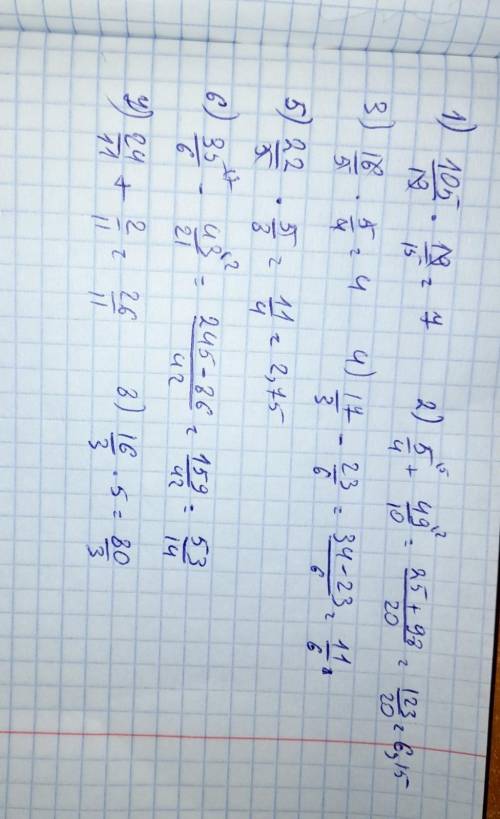 1) 105/12 · 12/15 = 7 2) 5\5/4 + 49\2/10 = 25+98/20 = 123/20 = 6,15
3) 16/5 · 5/4 = 4 4) 17/3 - 23/6 = 34-23/6 = 11/6
5) 22/5 · 5/8 = 11/4 = 2,75
6) 35\7/6 - 43\2/21 = 245-86/42 = 159/42 = 53/14
7) 24/11 + 2/11 = 26/11 8) 16/3 · 5 = 80/3